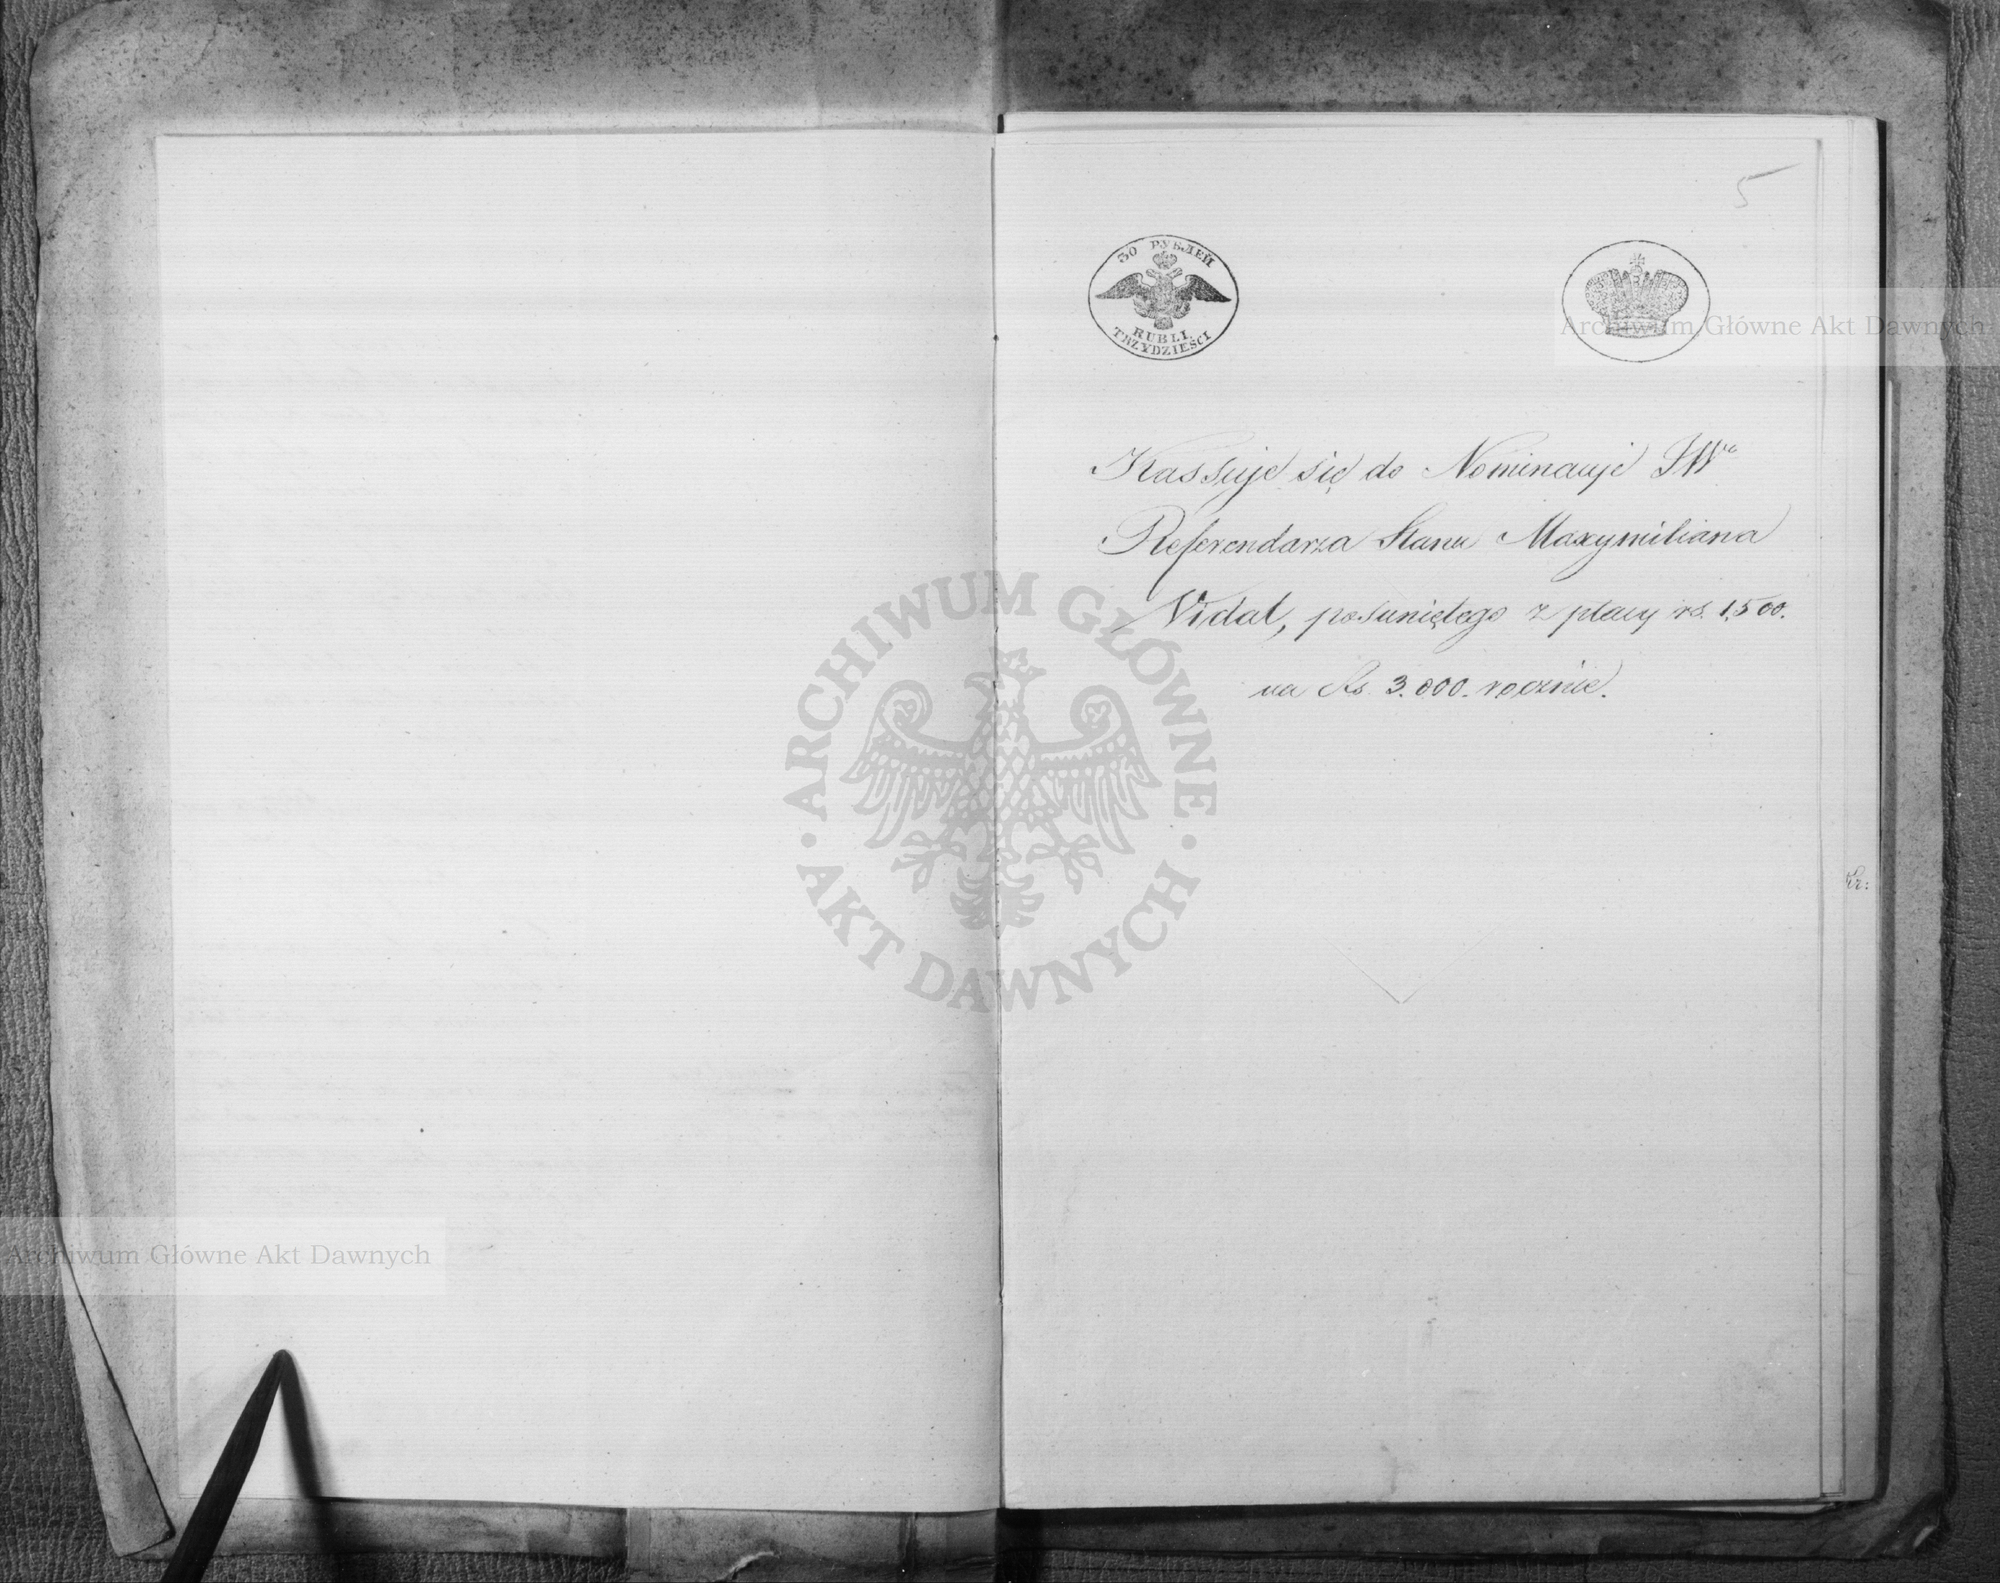 5
30 РУБЛЕЙ
RUBLI
TRZYDZIEŚCI
Archiwum Główne Akt Dawnych
Kassuje się do Nominacyi JW<sup>o</sup>
Referendarza Stanu Maxymiliana
Vidal, posuniętego z płacy rs. 1,500.
na Rs. 3.000. rocznie.
ARCHIWUM GŁÓWNE
AKT DAWNYCH
Archiwum Główne Akt Dawnych